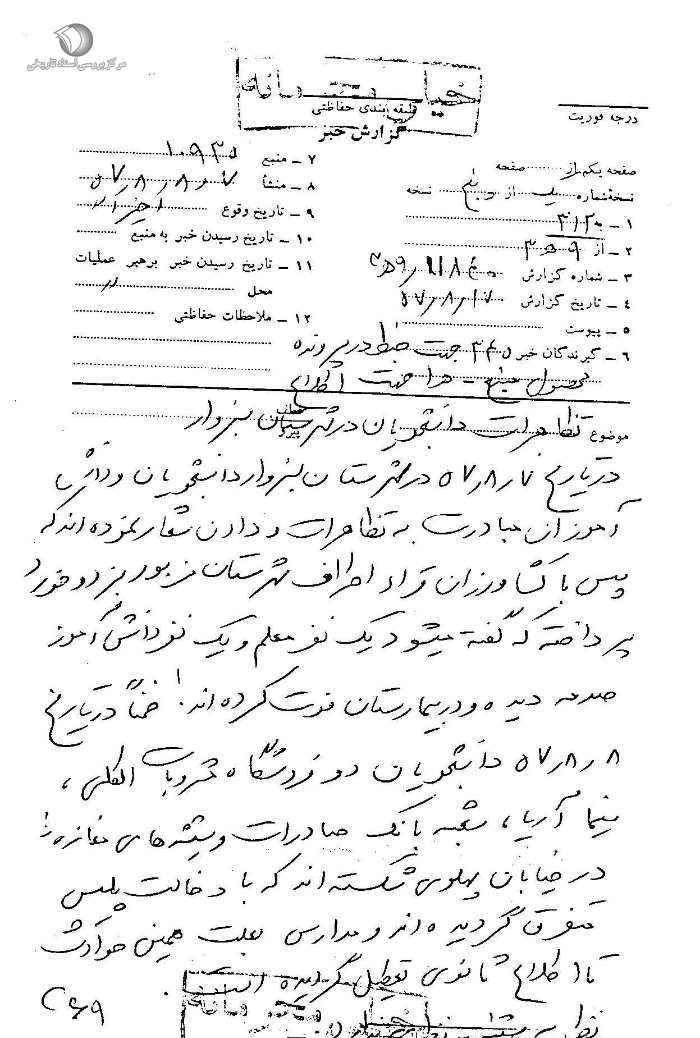 مرکز بررسی اسناد تاریخی
خیلی محرمانه
طبقه بندی حفاظتی
گزارش خبر
درجه فوریت
صفحه یکم از صفحه
نسخه شماره یک از پنج نسخه
۱ - به ۳۱۲
۲ - از ۹ه۳
۳ - شماره گزارش
۴ - تاریخ گزارش ۵۷٫۸٫۱۷
۵ - پیوست
۶ - گیرندگان خبر ۳۴۵ جهت ضبط در پرونده
محصول منبع - هـ۱ جهت اطلاع
۷ - منبع ۱۰۹۳۵
۸ - منشأ
۹ - تاریخ وقوع
۱۰ - تاریخ رسیدن خبر به منبع
۱۱ - تاریخ رسیدن خبر برهبر عملیات
محل
۱۲ - ملاحظات حفاظتی
موضوع تظاهرات دانشجویان در شهرستان سبزوار
در تاریخ ۵۷٫۸٫۷ در شهرستان سبزوار دانشجویان و دانش
آموزان مبادرت به تظاهرات و دادن شعار نموده اند که
سپس با کشاورزان قراء اطراف شهرستان مزبور بزد و خورد
پرداخته که گفته میشود یک نفر معلم و یک نفر دانش آموز
صدمه دیده و در بیمارستان فوت کرده اند. ضمناً در تاریخ
۵۷٫۸٫۸ دانشجویان دو فروشگاه مشروبات الکلی ،
سینما آریا ، شعبه بانک صادرات و شیشه های مغازه ها
در خیابان پهلوی شکسته اند که با دخالت پلیس
متفرق گردیده اند و مدارس بعلت همین حوادث
تا اطلاع ثانوی تعطیل گردیده است.
خیلی محرمانه